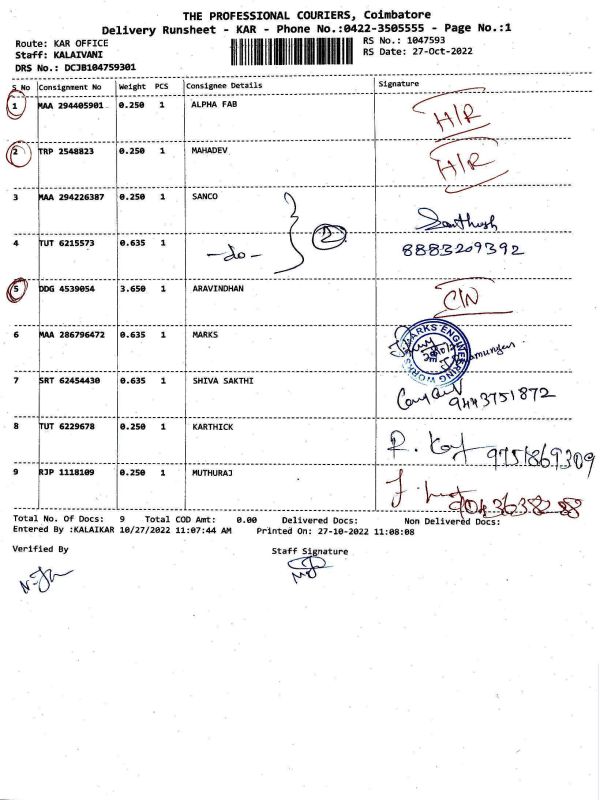 THE PROFESSIONAL COURIERS, Coimbatore
Delivery Runsheet - KAR - Phone No.:0422-3505555 - Page No.:1
Route: KAR OFFICE
RS No.: 1047593
Staff: KALAIVANI
RS Date: 27-Oct-2022
DRS No.: DCJB104759301
S No Consignment No Weight PCS Consignee Details Signature
1 MAA 294405901 0.250 1 ALPHA FAB H/R
2 TRP 2548823 0.250 1 MAHADEV H/R
3 MAA 294226387 0.250 1 SANCO Santhosh
2
4 TUT 6215573 0.635 1 -do- 8883209392
5 DDG 4539054 3.650 1 ARAVINDHAN C/N
6 MAA 286796472 0.635 1 MARKS MARKS ENGINEERING WORKS
7 SRT 62454430 0.635 1 SHIVA SAKTHI 9443751872
8 TUT 6229678 0.250 1 KARTHICK 9751869309
9 RJP 1118109 0.250 1 MUTHURAJ
Total No. Of Docs: 9 Total COD Amt: 0.00 Delivered Docs: Non Delivered Docs:
Entered By :KALAIKAR 10/27/2022 11:07:44 AM Printed On: 27-10-2022 11:08:08
Verified By Staff Signature